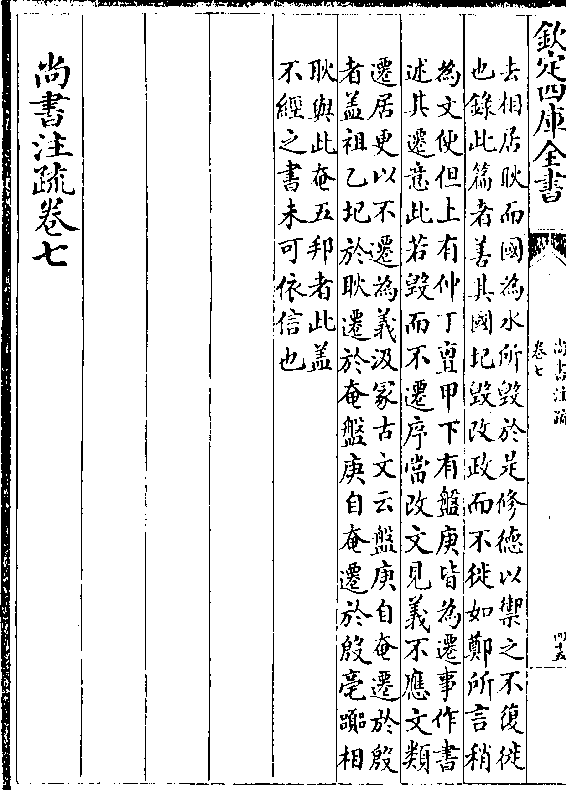 欽定四庫全書
尚書注疏
卷七
四十五
去相居耿而國為水所毀於是修德以禦之不復徙
也錄此篇者善其國圯毀改政而不徙如鄭所言稍
為文便但上有仲丁亶甲下有盤庚皆為遷事作書
述其遷意此若毀而不遷序當改文見義不應文類
遷居更以不遷為義汲冢古文云盤庚自奄遷於殷
者盖祖乙圯於耿遷於奄盤庚自奄遷於殷亳嚻相
耿與此奄五邦者此盖
不經之書未可依信也
尚書注疏卷七